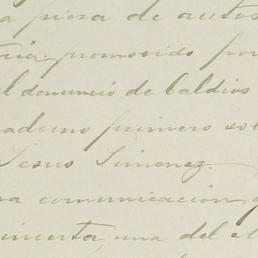 a pieza de autos
promovido por
el denuncio de baldíos
cuaderno primero so
Jesus Jimenez.
na comunicacion
inserta, una del